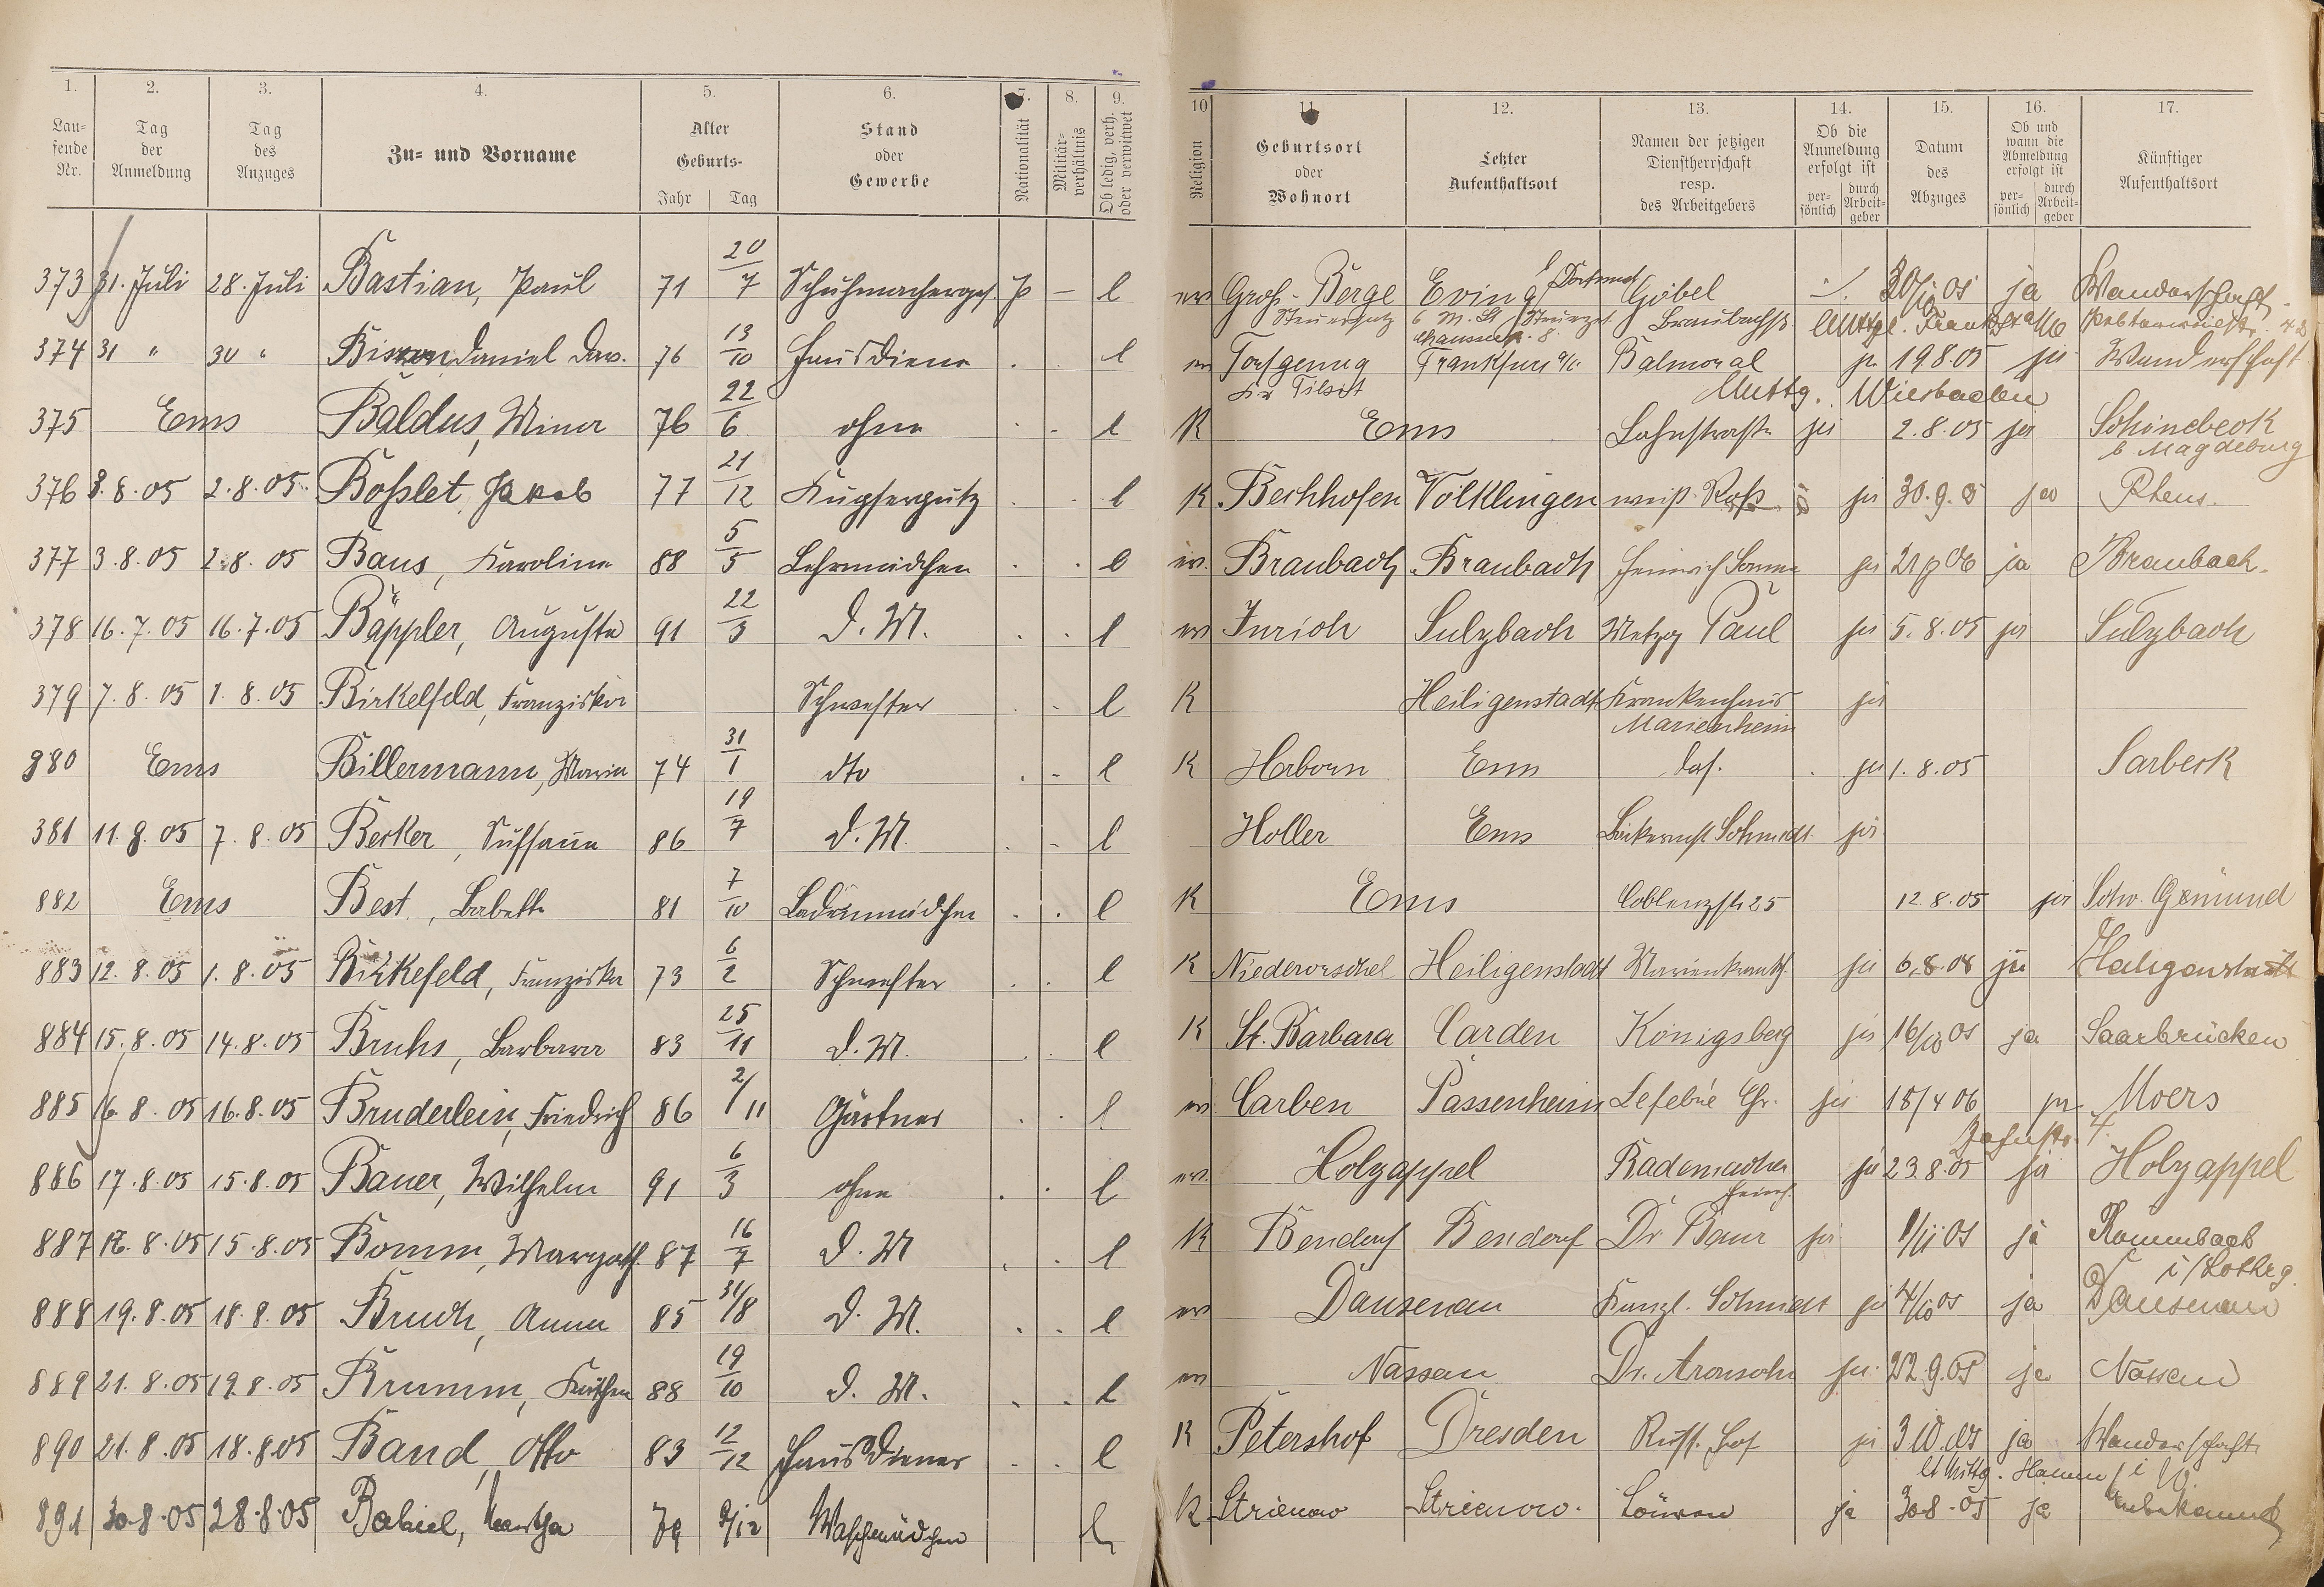 1. 2. 3. 4. 5. 6. 7. 8. 9. 10 11 12. 13. 14. 15. 16. 17.
Lau-fende Nr. Tag der Anmeldung Tag des Anzuges Zu- und Vorname Alter Geburts- Jahr Tag Stand oder Gewerbe Nationalität Militär-verhältnis Ob ledig, verh. oder verwitwet Religion Geburtsort oder Wohnort Letzter Aufenthaltsort Namen der jetzigen Dienstherrschaft resp. des Arbeitgebers Ob die Anmeldung erfolgt ist per-sönlich durch Arbeit-geber Datum des Abzuges Ob und wann die Abmeldung erfolgt ist per-sönlich durch Arbeit-geber Künftiger Aufenthaltsort
373 31. Juli 28. Juli Bastian, Paul 71 20/7 Schuhmacherges. P – l ev Groß-Berge Eving Dortmund Göbel 30/10 05 ja Wanderschaft
374 31 " 30 " Daniel 76 13/10 Hausdiener l ev Frankfurt a/. Balmoral ja 19 8.05 ja Wanderschaft
Kr Tilsit Wiesbaden
375 Ems Baldus, Minna 76 22/6 ohne l K Ems Lahnstraße ja 2.8.05 ja
b Magdeburg
376 3.8.05 2.8.05 Boßlet, Jakob 77 21/12 Kupferputz l K Bechhofen Völklingen weiß. Roß ja 30.9.05 ja Rhens.
377 3.8.05 2.8.05 Baus, Karoline 88 5/5 Lehrmädchen l ev. Braubach Braubach Heinrich ja 06 ja Braubach.
378 16.7.05 16.7.05 Bäppler, Auguste 91 22/3 D. M. l ev Sulzbach Metzg Paul ja 5.8.05 ja Sulzbach
379 7.8.05 1.8.05 Birkelfeld, Franziska Schwester l K Heiligenstadt Krankenhaus ja
Marienheim
380 Ems Billermann, Maria 74 31/1 dto l K Ems das. ja 1.8.05 Sarbeck
381 11.8.05 7.8.05 Becker, Susanne 86 19/7 D. M. l Holler Ems Schmidt ja
882 Ems Best, Babette 81 7/10 Ladenmädchen l K Ems Coblenzstr 25 12.8.05 ja Schw. Gemünd
883 12.8.05 1.8.05 Birkefeld, Franziska 73 6/2 Schwester l K Niederorschel Heiligenstadt Marienkrankh. ja 6.8.08 ja Heiligenstadt
884 15.8.05 14.8.05 Bruhs, Barbara 83 25/11 D. M. l K St. Barbara Carden Königsberg ja 16/10 05 ja Saarbrücken
885 16.8.05 16.8.05 Bruderlein, Friedrich 86 2/11 Gärtner l ev Carben Passenheim Lefebré Chr. ja 18/4 06 ja Moers
886 17.8.05 15.8.05 Bauer, Wilhelm 91 6/3 ohne l ev. Holzappel Rademacher ja 23 8.05 ja Holzappel
887 18.8.05 15.8.05 Bomm, Margath. 87 16/7 D. M l K Bendorf Bendorf Dr. Baur ja 1/11 05 ja Rommbach
i/Lothrg.
888 19.8.05 18.8.05 Bruch, Anna 85 31/8 D. M. l ev Dausenau Schmidt ja 4/10 05 ja Dausenau
889 21.8.05 19.8.05 Brumm, Käthen 88 19/10 D. M. l ev Nassau Dr. Aronsohn ja 22.9.05 ja Nassau
890 21.8.05 18.8.05 Band, Otto 83 12/12 Hausdiener l K Petershof Dresden Russ. Hof ja 3 10.05 ja Wanderschaft
Hamm i W.
891 30.8.05 28.8.05 Martha 79 9/12 Waschmädchen l K Strienow Strienow. Löwen ja 30.8.05 ja unbekannt